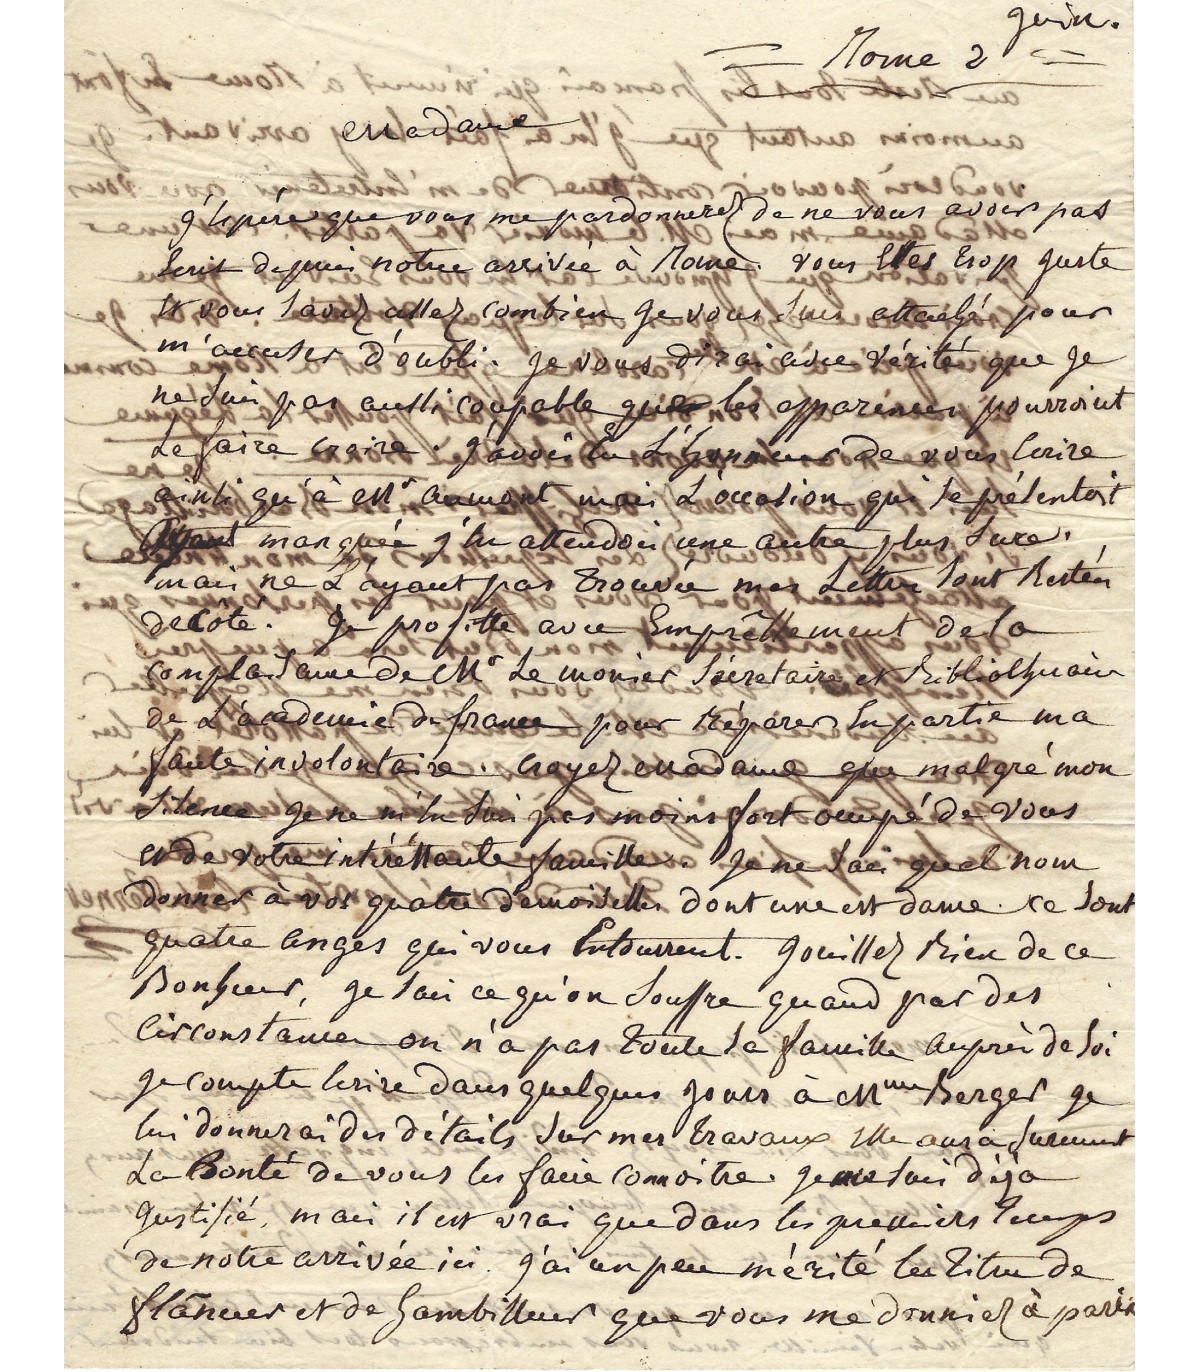 juin.
Rome 2
Madame
j'espére que vous me pardonnerez de ne vous avoir pas
écrit depuis notre arrivée à Rome. vous êtes trop juste
et vous savez assez combien je vous suis attaché pour
m'accuser d'oubli. je vous dirai avec vérité que je
ne suis pas aussi coupable que les apparences pourroient
le faire croire. j'avois eu l'honneur de vous écrire
ainsi qu'à Mr aumont mais l'occasion qui se présentoit
ayant manquée j'en attendois une autre plus sure.
mais ne l'ayant pas trouvée mes lettres sont restées
de côté. Je profitte avec empressement de la
complaisance de Mr Le monier sécretaire et Bibliothécaire
de l'académie de france pour réparer en partie ma
faute involontaire. croyez Madame que malgré mon
silence je ne m'en suis pas moins fort occupé de vous
et de votre intéressante famille. Je ne sais quel nom
donner à vos quatre demoiselles dont une est dame. ce sont
quatre anges qui vous entourent. jouissez bien de ce
Bonheur, je sais ce qu'on souffre quand par des
circonstances on n'a pas toute sa famille auprès de soi
je compte écrire dans quelques jours à Mme Berger je
lui donnerai des détails sur mes travaux elle aura surement
la Bonté de vous les faire connoitre. je me suis déja
justifié, mais il est vrai que dans les premiers temps
de notre arrivée ici j'ai un peu mérité les titres de
flâneur et de gambilleur que vous me donniez à paris